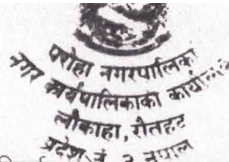 परोहा नगरपालिका
नगर कार्यपालिकाको कार्यालय
लौकाहा, रौतहट
प्रदेश नं. २ नेपाल